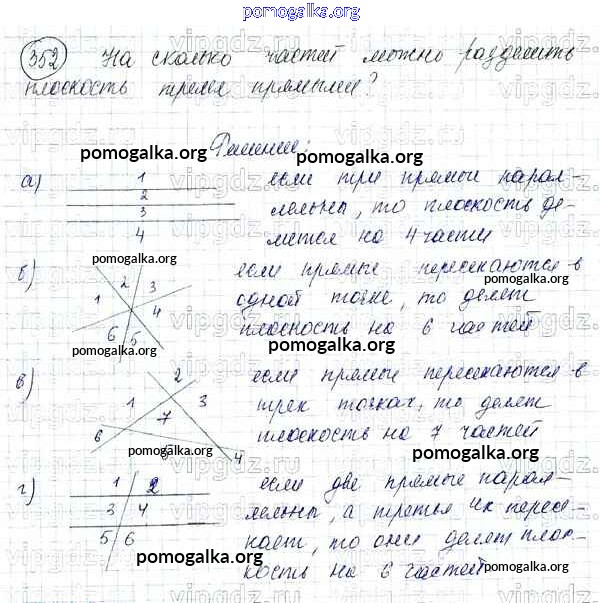 pomogalka.org
352 На сколько частей можно разделить
плоскость тремя прямыми?
Решение:
pomogalka.org
pomogalka.org
а) 1 2 3 4
если три прямые парал-
лельны, то плоскость де-
лится на 4 части
pomogalka.org
б) 1 2 3 4 5 6
если прямые пересекаются в
одной точке, то делят
плоскость на 6 частей
pomogalka.org
pomogalka.org
в) 1 2 3 7 6 4
если прямые пересекаются в
трех точках, то делят
плоскость на 7 частей
pomogalka.org
pomogalka.org
г) 1 2 3 4 5 6
если две прямые парал-
лельны, а третья их пересе-
кает, то они делят плос-
кость на 6 частей
pomogalka.org
pomogalka.org
vipgdz.ru